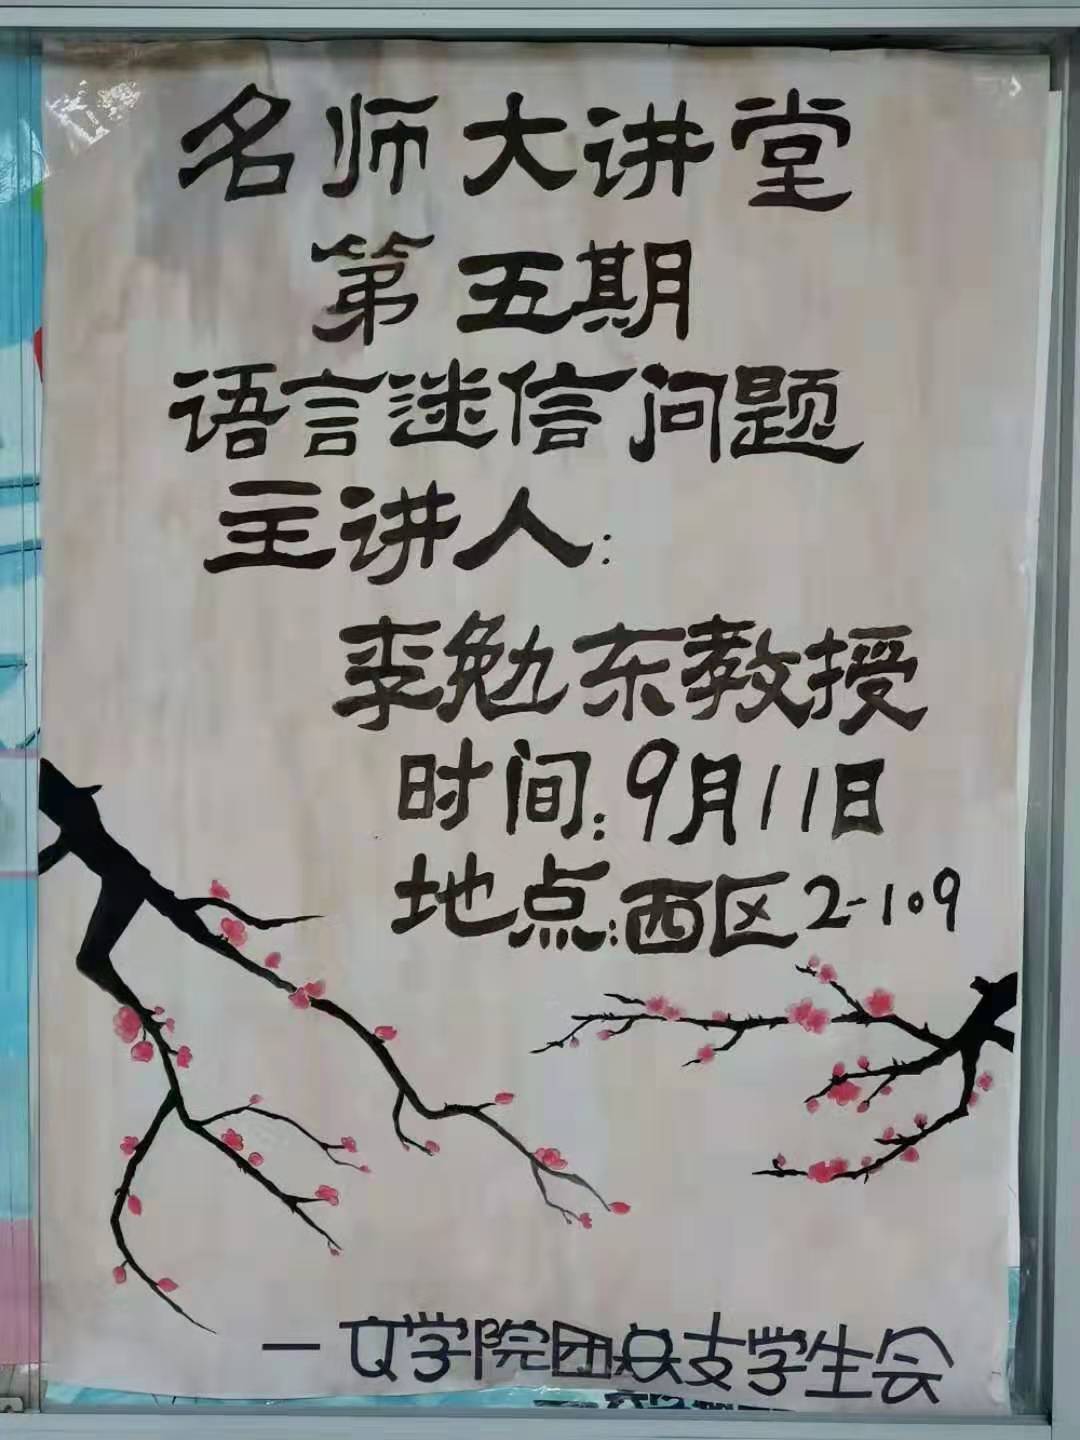 名师大讲堂
第五期
语言迷信问题
主讲人:
李勉东教授
时间:9月11日
地点:西区2-109
一文学院团总支学生会